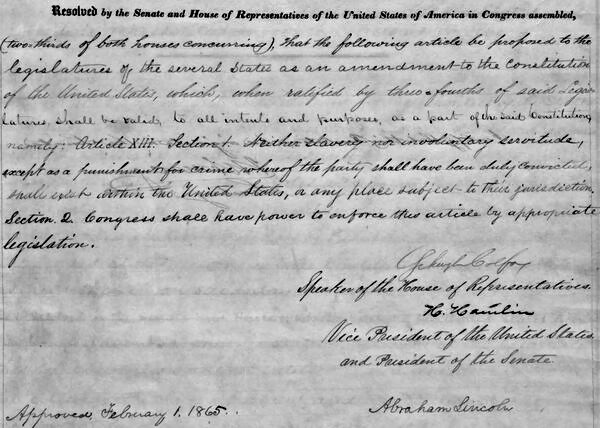 Resolved by the Senate and House of Representatives of the United States of America in Congress assembled,
(two-thirds of both houses concurring), That the following article be proposed to the
legislatures of the several States as an amendment to the Constitution
of the United States, which, when ratified by three-fourths of said Legis-
latures, shall be valid, to all intents and purposes, as a part of the said Constitution,
namely: Article XIII. Section 1. Neither slavery nor involuntary servitude,
except as a punishment for crime whereof the party shall have been duly convicted,
shall exist within the United States, or any place subject to their jurisdiction.
Section 2. Congress shall have power to enforce this article by appropriate
legislation.
Schuyler Colfax
Speaker of the House of Representatives.
H. Hamlin
Vice President of the United States,
and President of the Senate.
Approved, February 1. 1865.
Abraham Lincoln